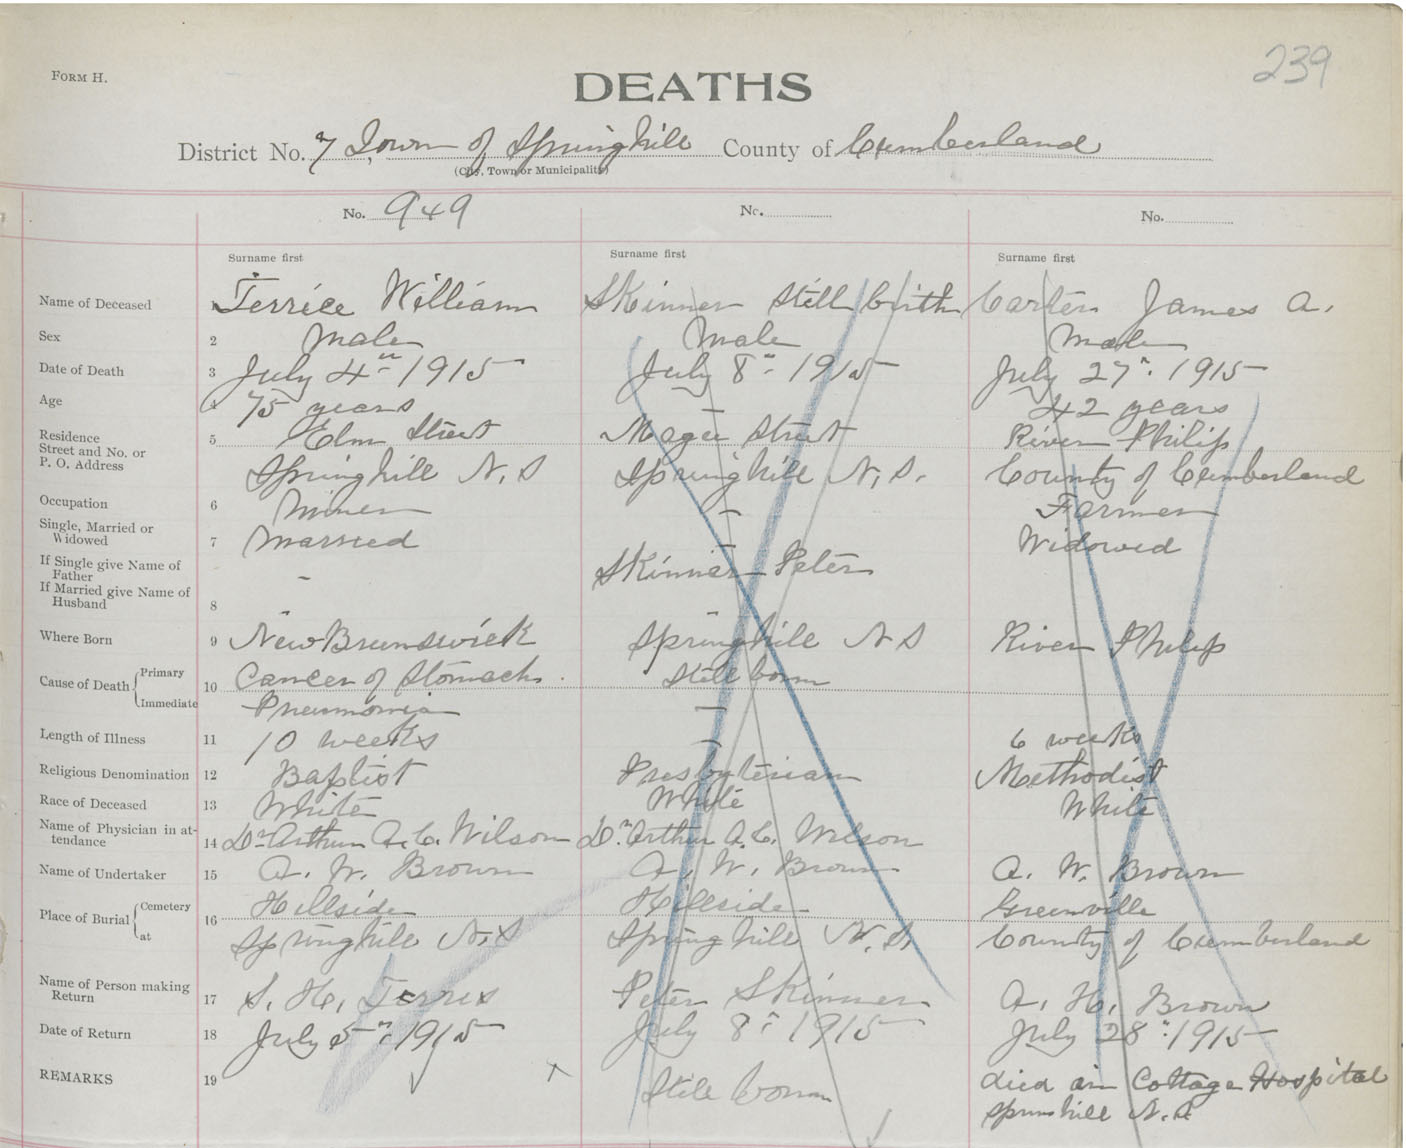 239
FORM H.
DEATHS
District No. 7 Town of Springhill County of Cumberland
(City, Town or Municipality)
No. 949 No. No.
Surname first Surname first Surname first
Name of Deceased 1 Terrice William Skinner Still birth Carter James A.
Sex 2 Male Male Male
Date of Death 3 July 4th 1915 July 8" 1915 July 27" 1915
Age 4 75 years – 42 years
Residence Street and No. or P. O. Address 5 Elm Street Magee Street River Philip
Springhill N.S Springhill N.S. County of Cumberland
Occupation 6 Miner – Farmer
Single, Married or Widowed 7 Married – Widowed
If Single give Name of Father – Skinner Peter
If Married give Name of Husband 8 – –
Where Born 9 New Brunswick Springhill N S River Philip
Cause of Death { Primary 10 Cancer of Stomach. Still born
Immediate Pneumonia –
Length of Illness 11 10 weeks – 6 weeks
Religious Denomination 12 Baptist Presbyterian Methodist
Race of Deceased 13 White White White
Name of Physician in attendance 14 Dr Arthur A. C. Wilson Dr. Arthur A. C. Wilson
Name of Undertaker 15 A. W. Brown A. W. Brown A. W. Brown
Place of Burial { Cemetery 16 Hillside Hillside Greenville
at Springhill N.S Springhill N.S. County of Cumberland
Name of Person making Return 17 S. H. Terris Peter Skinner A. H. Brown
Date of Return 18 July 5" 1915 July 8" 1915 July 28" 1915
REMARKS 19 Still born died in Cottage Hospital
Springhill N.S